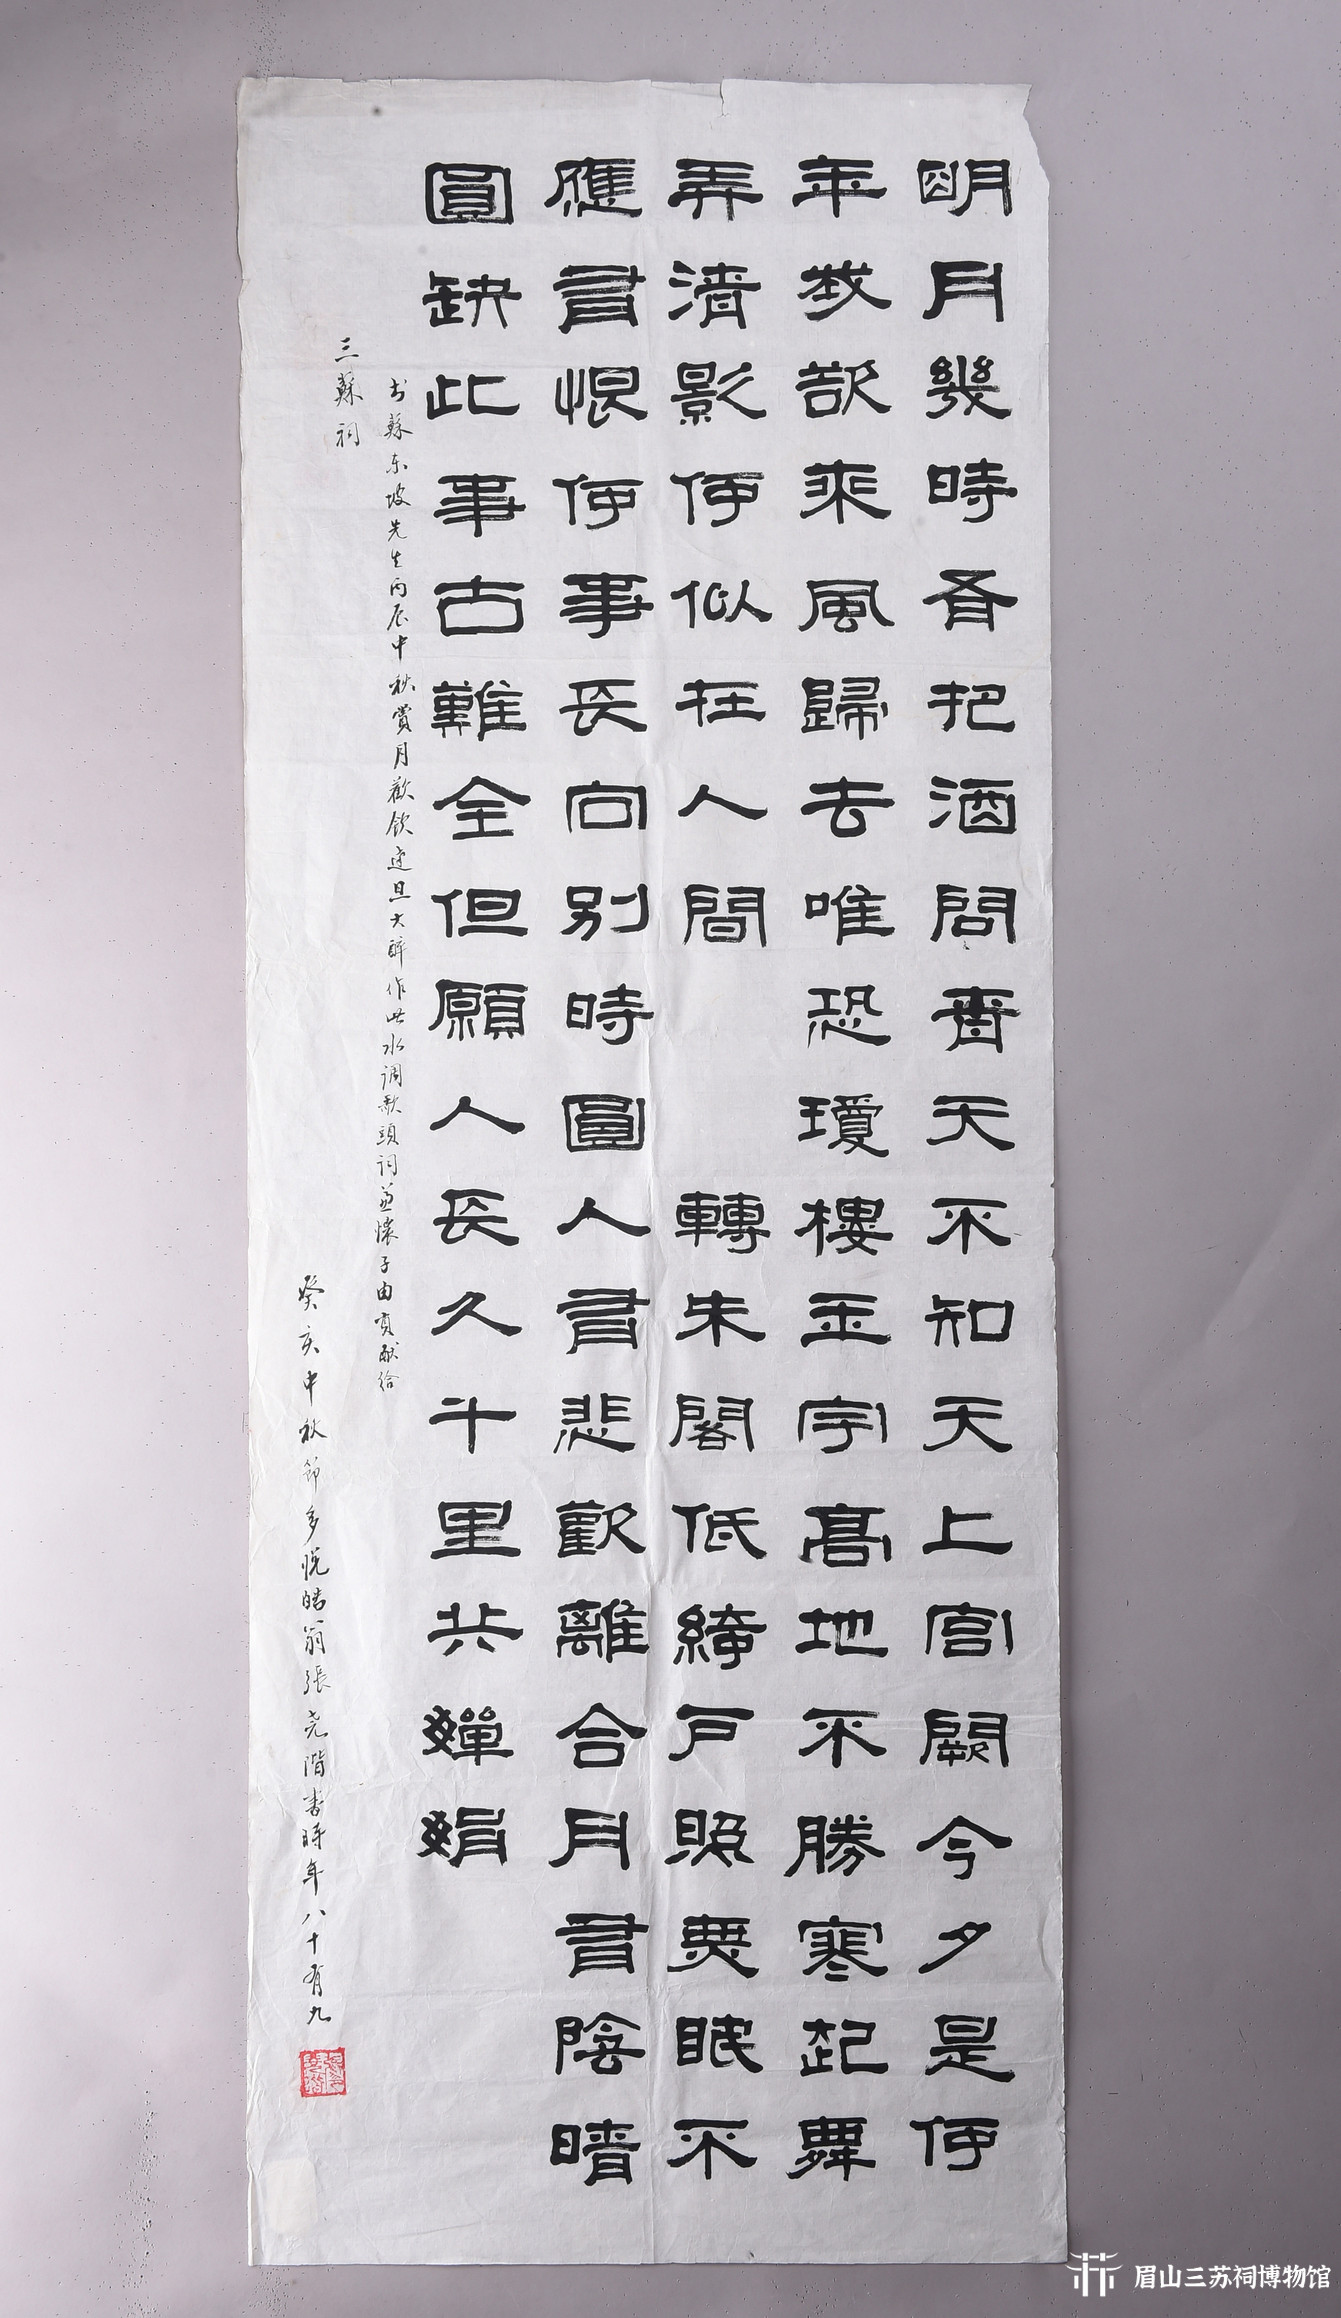 明月幾時有把酒問青天不知天上宫闕今夕是何
年我欲乘風歸去唯恐瓊樓玉宇高地不勝寒起舞
弄清影何似在人間 轉朱閣低綺戶照無眠不
應有恨何事長向別時圓人有悲歡離合月有陰晴
圓缺此事古難全但願人長久千里共嬋娟
书蘇东坡先生丙辰中秋賞月歡飲达旦大醉作此水调歌頭詞兼懷子由贡献给
三蘇祠
癸亥中秋節多悦皓翁張尧階書時年八十有九
眉山三苏祠博物馆